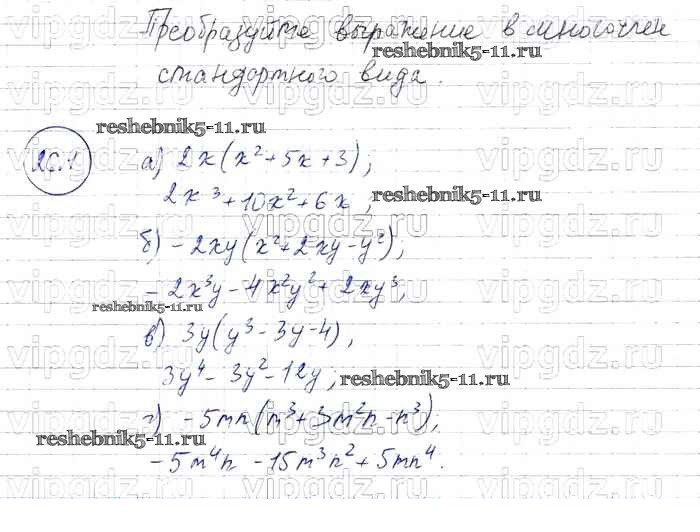 Преобразуйте выражение в многочлен
стандартного вида.
26.1
а) 2x(x²+5x+3);
2x³+10x²+6x;
б) -2xy(x²+2xy-y²);
-2x³y-4x²y²+2xy³;
в) 3y(y³-3y-4),
3y⁴-3y²-12y;
г) -5mn(m³+3m²n-n³);
-5m⁴n-15m³n²+5mn⁴.
reshebnik5-11.ru
reshebnik5-11.ru
reshebnik5-11.ru
reshebnik5-11.ru
reshebnik5-11.ru
reshebnik5-11.ru
vipgdz.ru